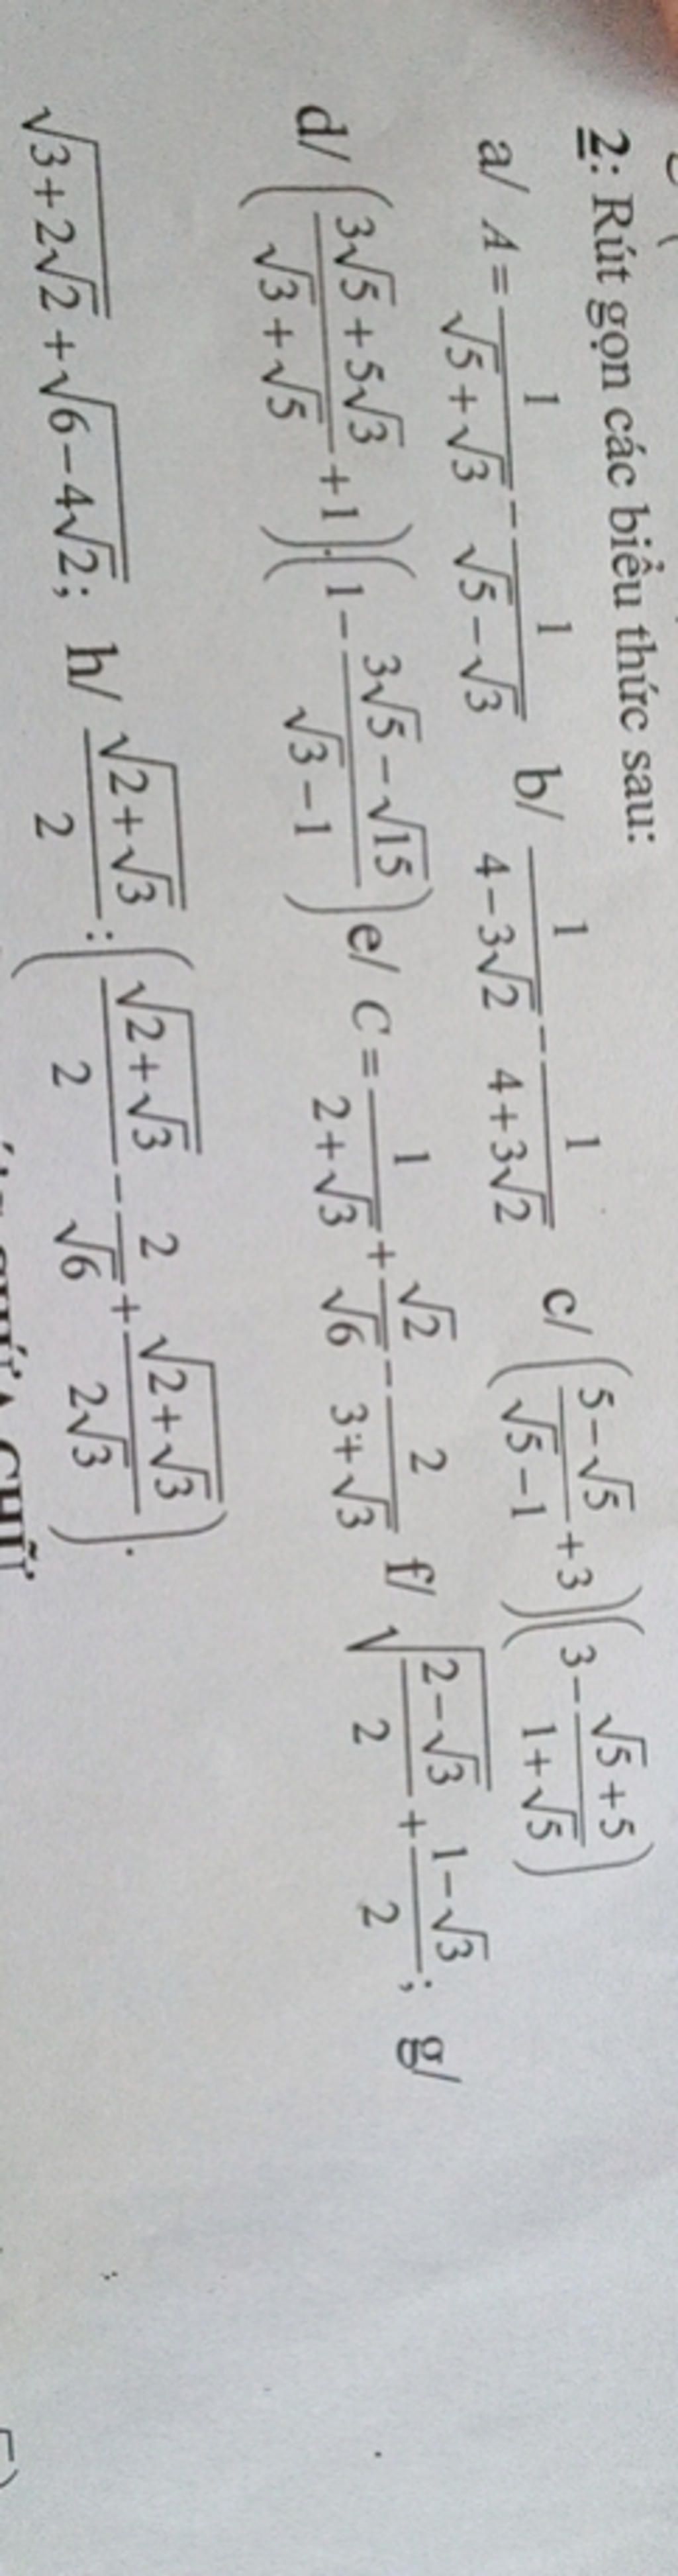 2: Rút gọn các biểu thức sau:
a/ A = \frac{1}{\sqrt{5}+\sqrt{3}} - \frac{1}{\sqrt{5}-\sqrt{3}} b/ \frac{1}{4-3\sqrt{2}} - \frac{1}{4+3\sqrt{2}} c/ \left(\frac{5-\sqrt{5}}{\sqrt{5}-1}+3\right)\left(3-\frac{\sqrt{5}+5}{1+\sqrt{5}}\right)
d/ \left(\frac{3\sqrt{5}+5\sqrt{3}}{\sqrt{3}+\sqrt{5}}+1\right).\left(1-\frac{3\sqrt{5}-\sqrt{15}}{\sqrt{3}-1}\right) e/ C = \frac{1}{2+\sqrt{3}} + \frac{\sqrt{2}}{\sqrt{6}} - \frac{2}{3+\sqrt{3}} f/ \sqrt{\frac{2-\sqrt{3}}{2}} + \frac{1-\sqrt{3}}{2}; g/
\sqrt{3+2\sqrt{2}} + \sqrt{6-4\sqrt{2}}; h/ \frac{\sqrt{2+\sqrt{3}}}{2} : \left(\frac{\sqrt{2+\sqrt{3}}}{2} - \frac{2}{\sqrt{6}} + \frac{\sqrt{2+\sqrt{3}}}{2\sqrt{3}}\right).